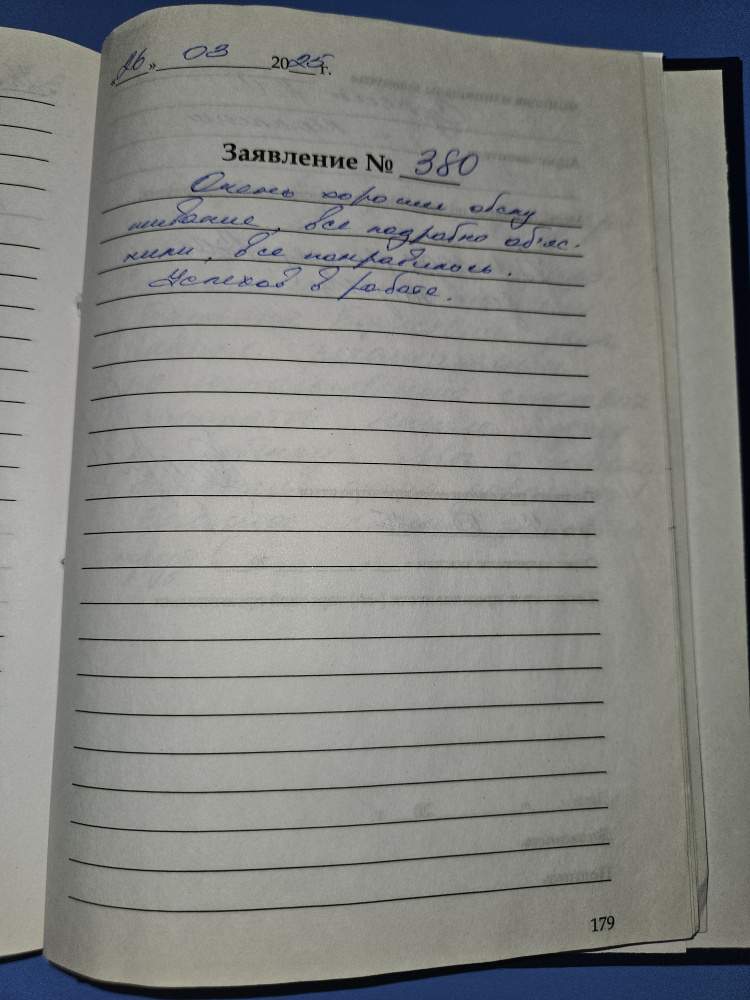 «26» 03 2025 г.
Заявление № 380
Очень хорошее обслу
живание, все подробно объяс-
нили, все понравилось.
Успехов в работе.
179